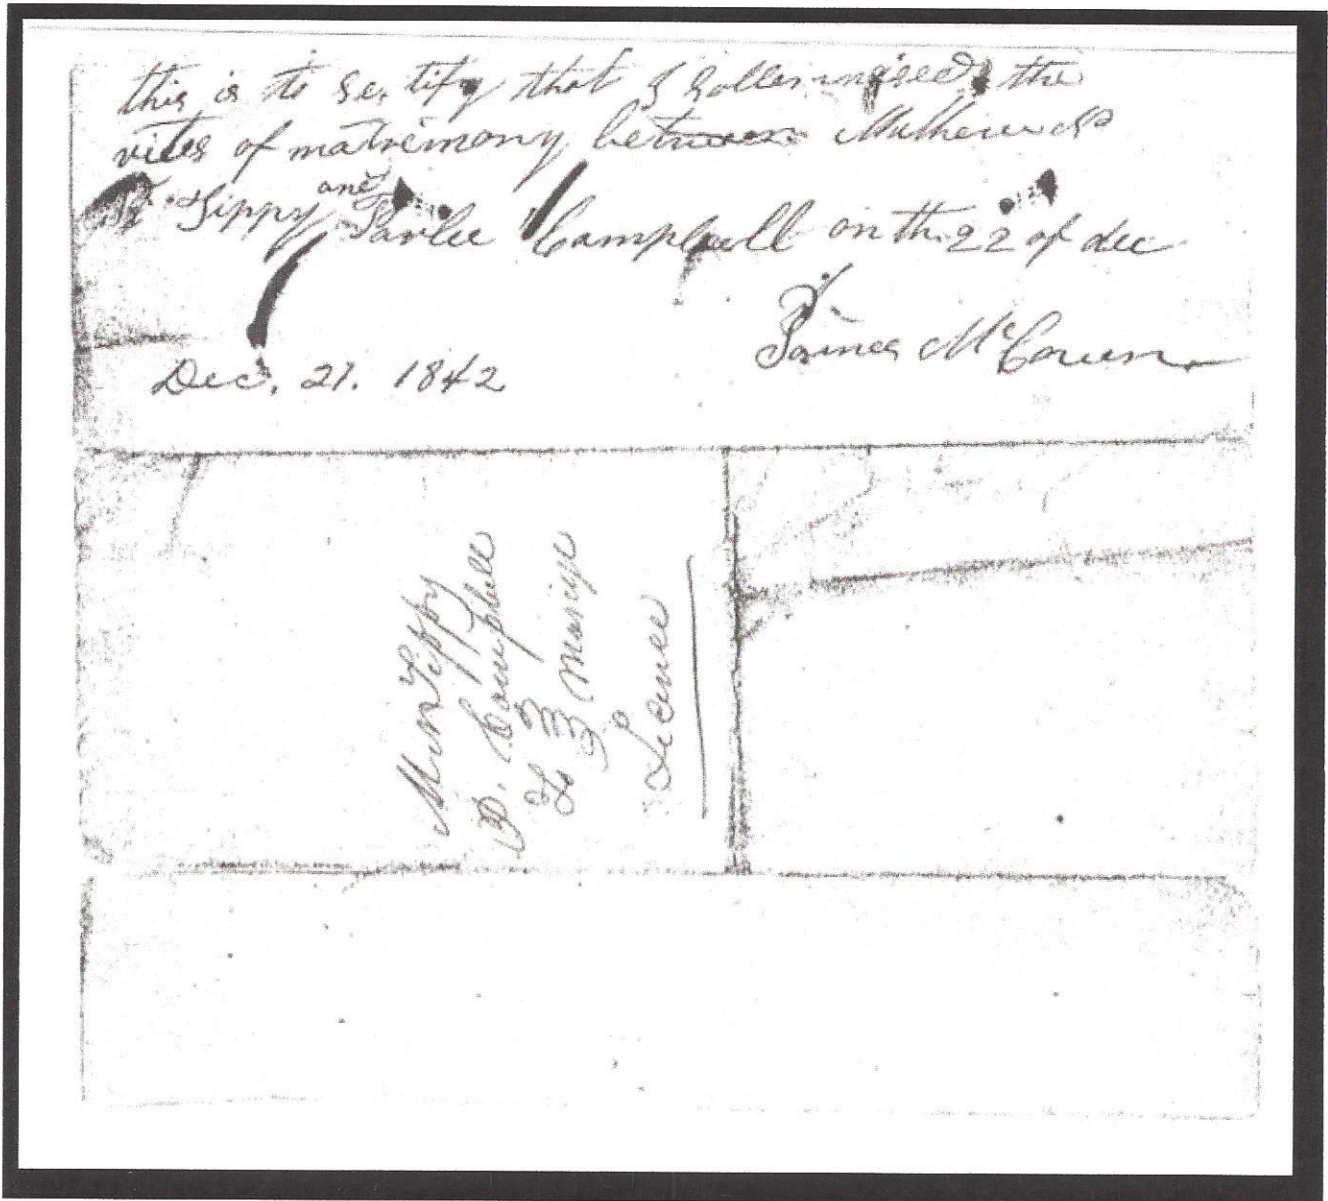 this is to Se, tify that I Sollemnised the
rites of matrimony between Mathew
Tippy and Parlee Campbell on th 22 of dec
James McCowen
Dec, 21. 1842
Tippy
P. Campbell
To mariye
Licence